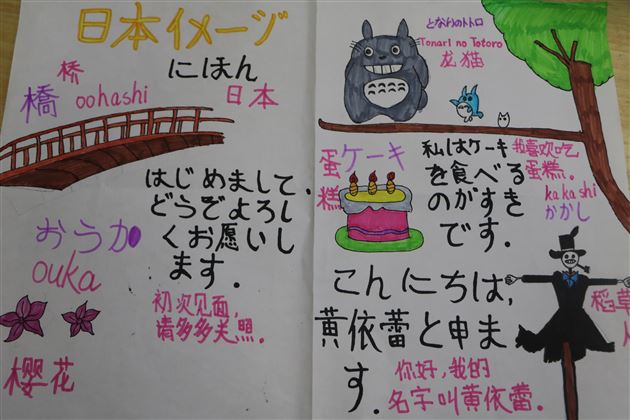 日本イメージ
桥
にほん
橋 oohashi
日本
はじめまして.
どうぞよろし
くお愿いし
ます.
おうか
ouka
初次见面,
请多多关照.
樱花
となりのトトロ
Tonari no Totoro
龙猫
蛋糕
ケーキ
私はケーキ
を食べる
のがすき
です.
我喜欢吃
蛋糕.
kakashi
かかし
こんにちは,
黄依蕾と申ま
す.
稻草人
你好,我的
名字叫黄依蕾.